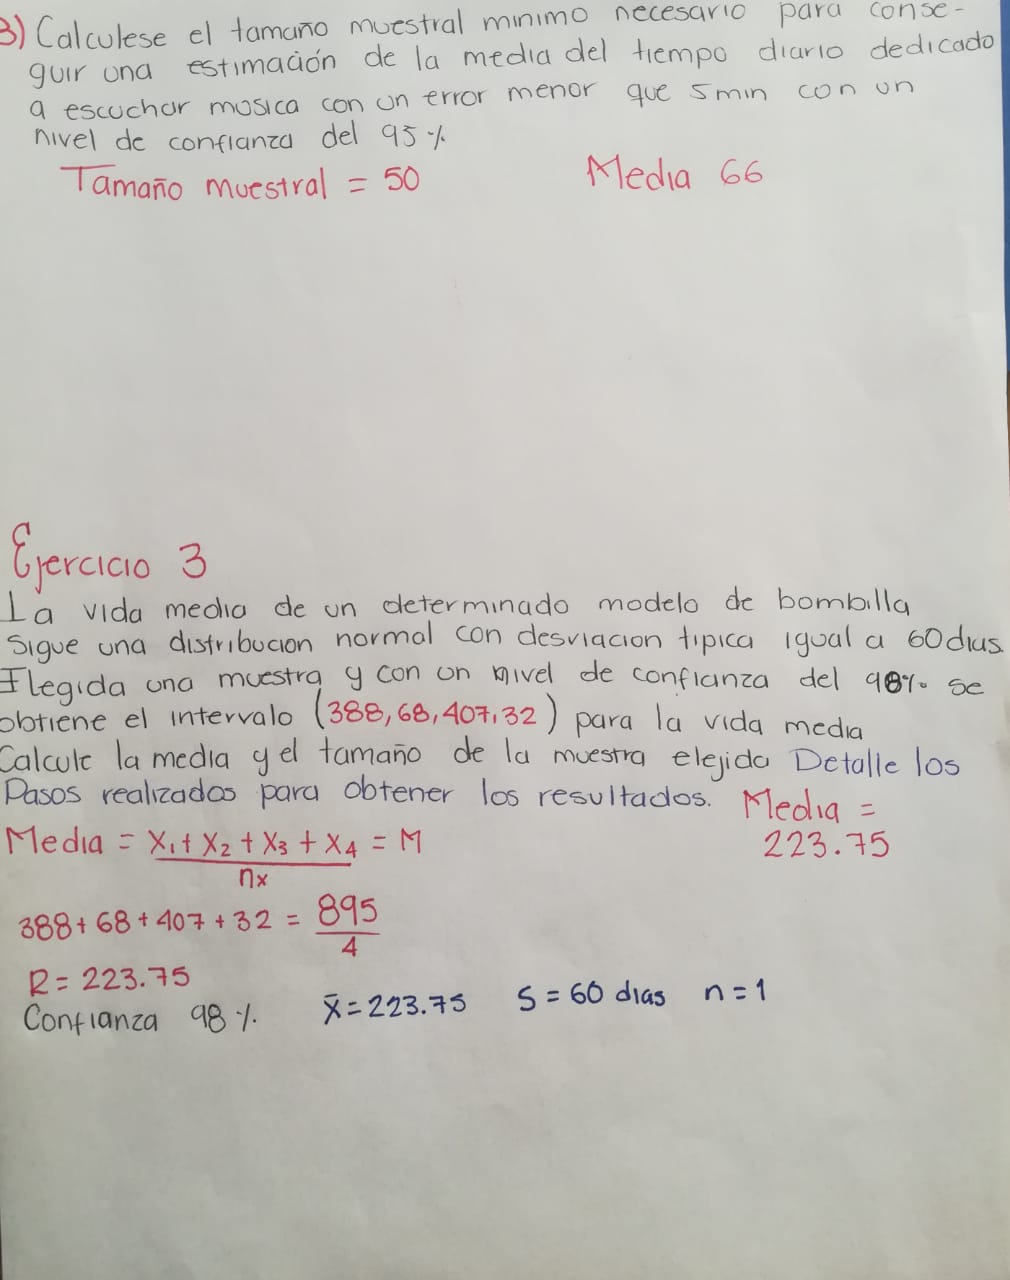 3) Calculese el tamaño muestral minimo necesario para conse-
guir una estimación de la media del tiempo diario dedicado
a escuchar musica con un error menor que 5min con un
nivel de confianza del 95%
Tamaño muestral = 50 Media 66
Ejercicio 3
La vida media de un determinado modelo de bombilla
Sigue una distribucion normal con desviacion tipica igual a 60 dias.
Elegida una muestra y con un nivel de confianza del 98% se
obtiene el intervalo (388,68,407,32) para la vida media
Calcule la media y el tamaño de la muestra elejida Detalle los
Pasos realizados para obtener los resultados. Media =
223.75
Media = X₁+ X₂ + X₃ + X₄ = M
nx
388+68+407+32 = 895
4
R= 223.75
Confianza 98% x̄=223.75 S=60 dias n=1